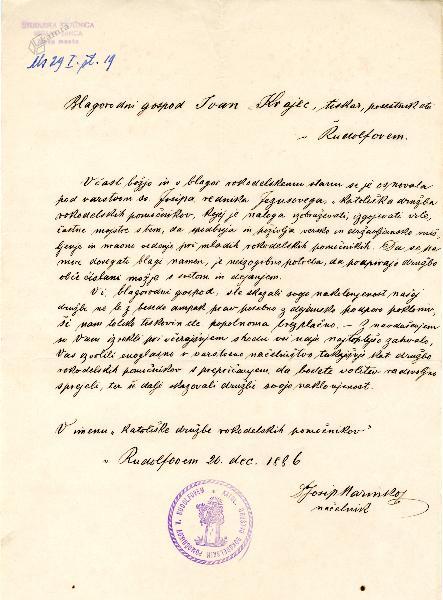 ŠTUDIJSKA KNJIŽNICA
Novo mesto
Ms 29 I. št. 19
Blagorodni gospod Ivan Krajec, tiskar, posestnik itd.
v Rudolfovem.
V čast božjo in v blagor rokodelskemu stanu se je osnovala
pod varstvom sv. Josipa rednika Jezusovega, „katoliška družba
rokodelskih pomočnikov, kojej je naloga izobraževati, izgojevati vrle,
častne mojstre s tem, da spodbuja in poživlja versko in državljansko miš-
ljenje in nravno vedenje pri mladih rokodelskih pomočnikih. Da se pa
more dosegati blagi namen, je neizogibno potreba, da podpirajo družbo
obče čislani možje s svetom in dejanjem.
Vi, blagorodni gospod, ste skazali svojo naklonjenost našej
družbi ne le z besedo ampak prav posebno z dejansko podporo
ši nam toliko tiskovin ste popolnoma brezplačno. – Z navdušenjem
so Vam izrekli pri včerajšnjem shodu vsi najo najtoplejšo zahvalo,
Vas izvolili enoglasno v varstveno načelništvo kat. družbe
rokodelskih pomočnikov s prepričanjem, da bodete volitev radovoljno
sprejeli, ter še dalje skazovali družbi svojo naklonjenost.
V imenu „katoliške družbe rokodelskih pomočnikov“
v Rudolfovem 26. dec. 1886
Josip Marinko
načelnik
KATOL. DRUŠTVO ROKODELSKIH POMOČNIKOV V RUDOLFOVEM